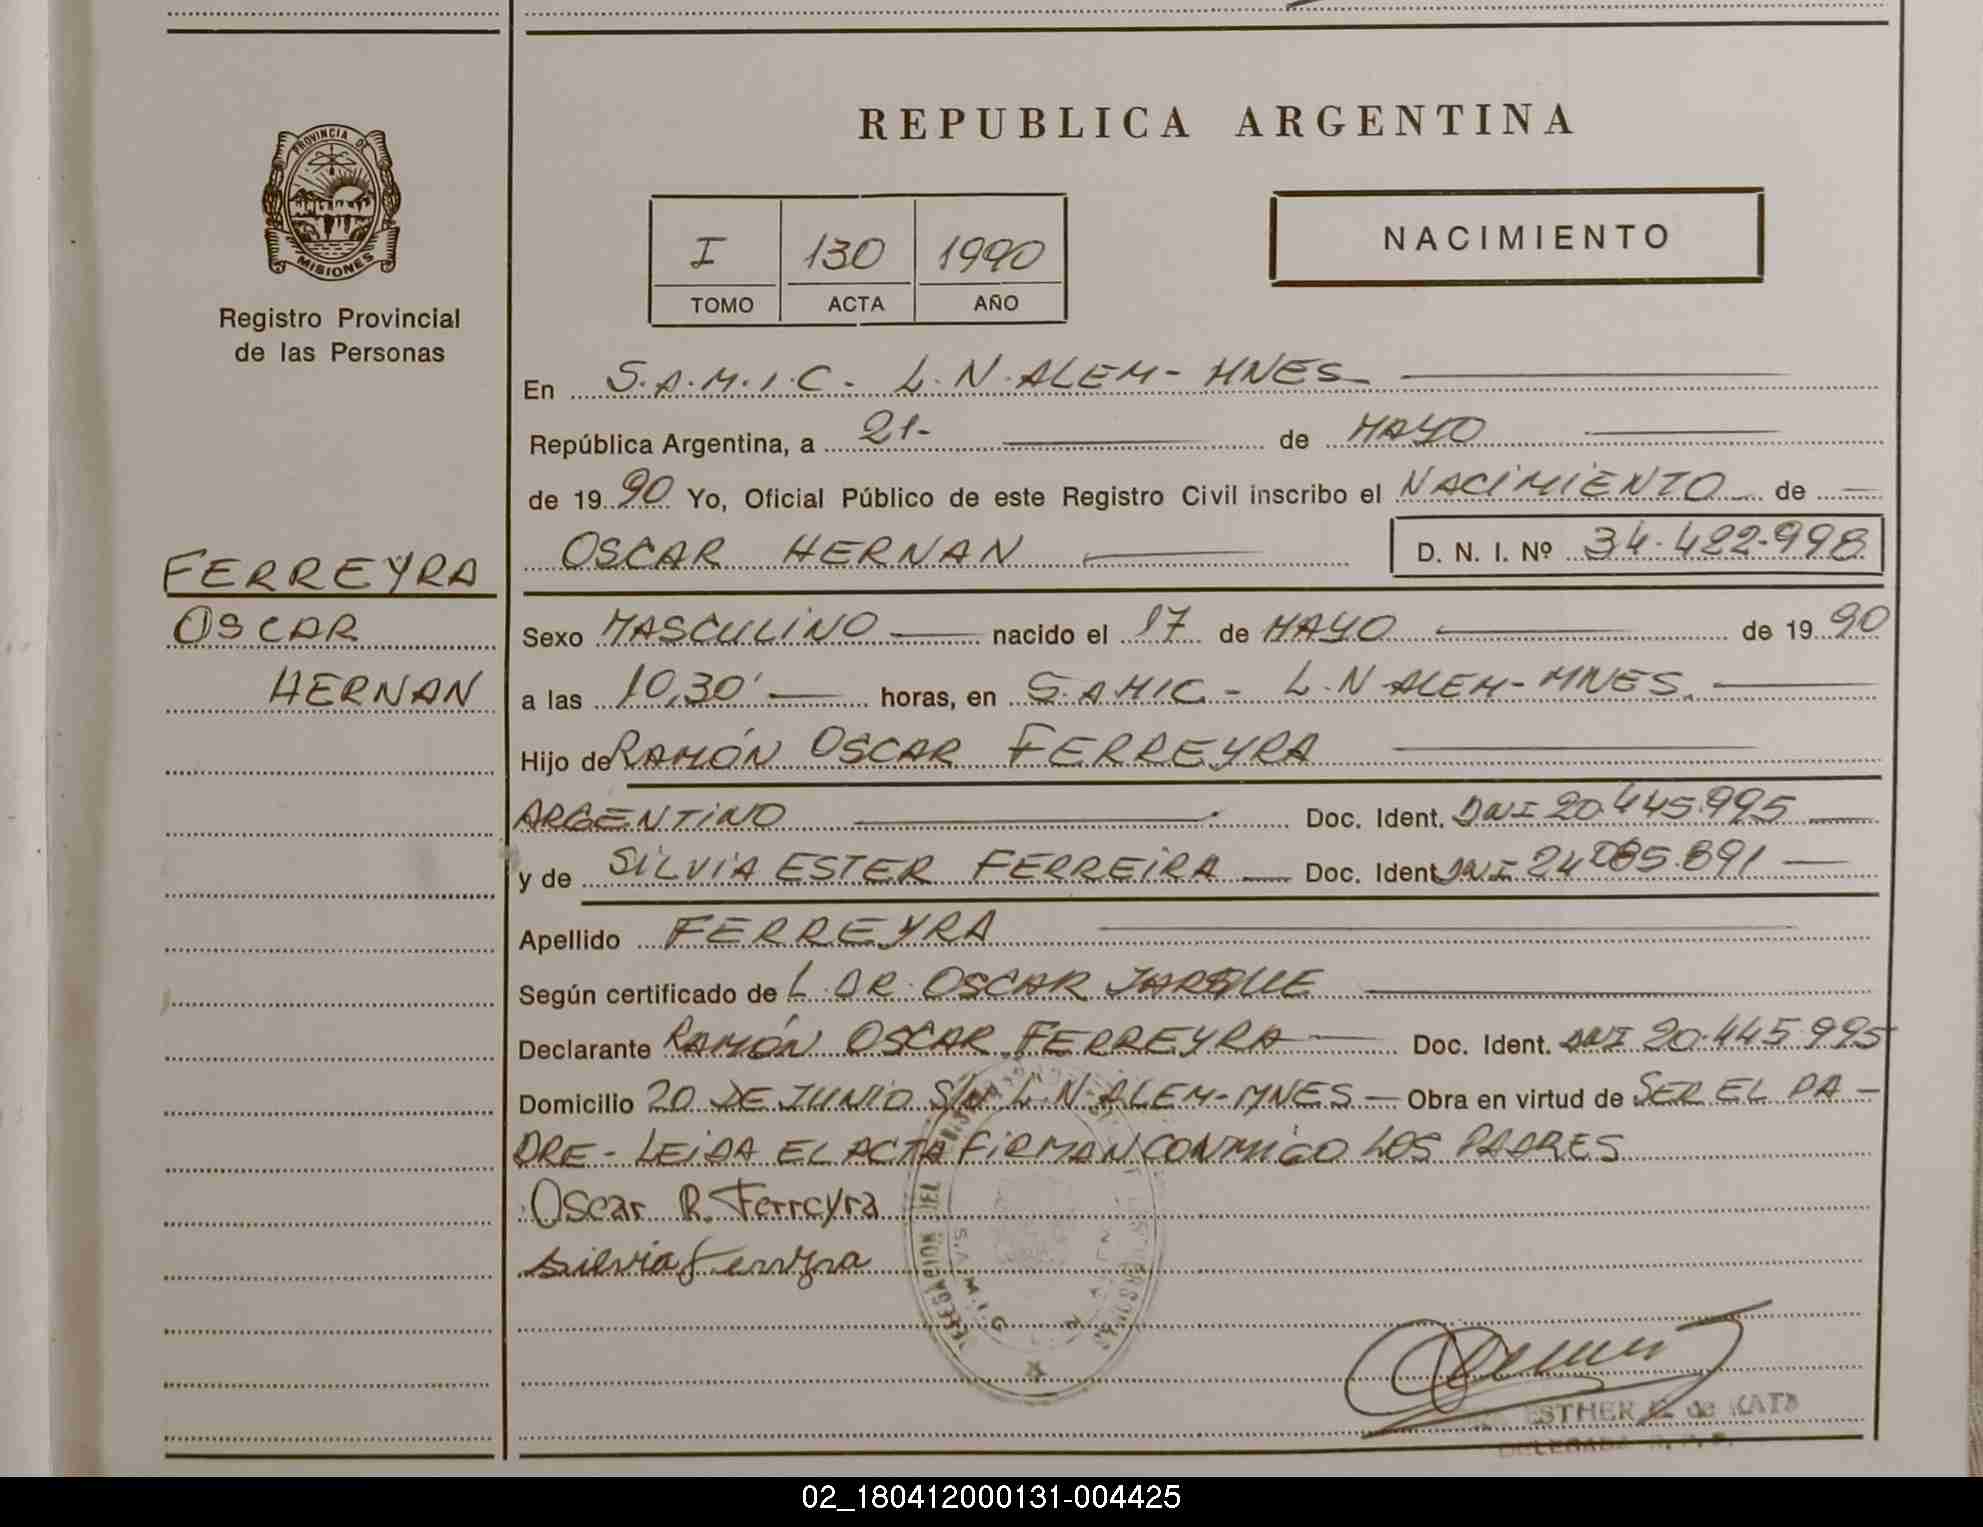 PROVINCIA D
MISIONES
Registro Provincial
de las Personas
FERREYRA
OSCAR
HERNAN
REPUBLICA ARGENTINA
I 130 1990
TOMO ACTA AÑO
NACIMIENTO
En S.A.M.I.C. - L.N. ALEM - MNES
República Argentina, a 21- de MAYO
de 1990 Yo, Oficial Público de este Registro Civil inscribo el NACIMIENTO de
OSCAR HERNAN D. N. I. Nº 34.422.998
Sexo MASCULINO nacido el 17 de MAYO de 1990
a las 10,30' horas, en S.AMIC - L.N ALEM - MNES.
Hijo de RAMÓN OSCAR FERREYRA
ARGENTINO Doc. Ident. DNI 20.445.995
y de SILVIA ESTER FERREIRA Doc. Ident. DNI 24.085.891
Apellido FERREYRA
Según certificado de L. DR. OSCAR JARQUE
Declarante RAMÓN OSCAR FERREYRA Doc. Ident. DNI 20.445.995
Domicilio 20 DE JUNIO S/N L.N. ALEM - MNES - Obra en virtud de SER EL PA-
DRE - LEIDA EL ACTA FIRMAN CONMIGO LOS PADRES
Oscar R. Ferreyra
Silvia Ferreyra
ESTHER de KATZ
02_180412000131-004425